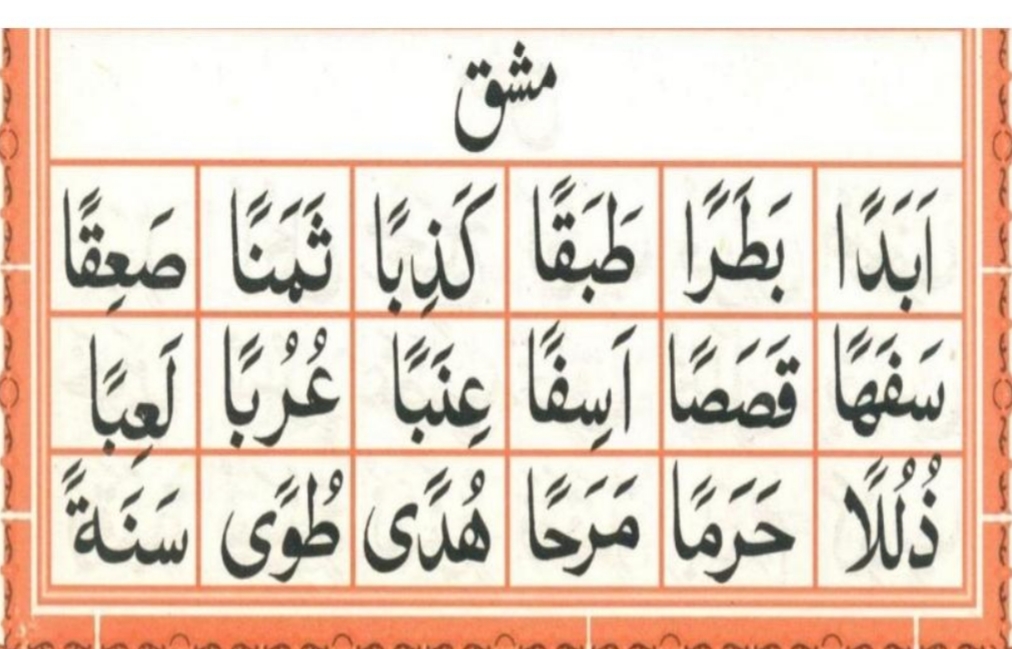 مشق
اَبَدًا بَطَرًا طَبَقًا كَذِبًا ثَمَنًا صَعِقًا
سَفَهًا قَصَصًا اَسِفًا عِنَبًا عُرُبًا لَعِبًا
ذُلُلًا حَرَمًا مَرَحًا هُدًى طُوًى سَنَةً